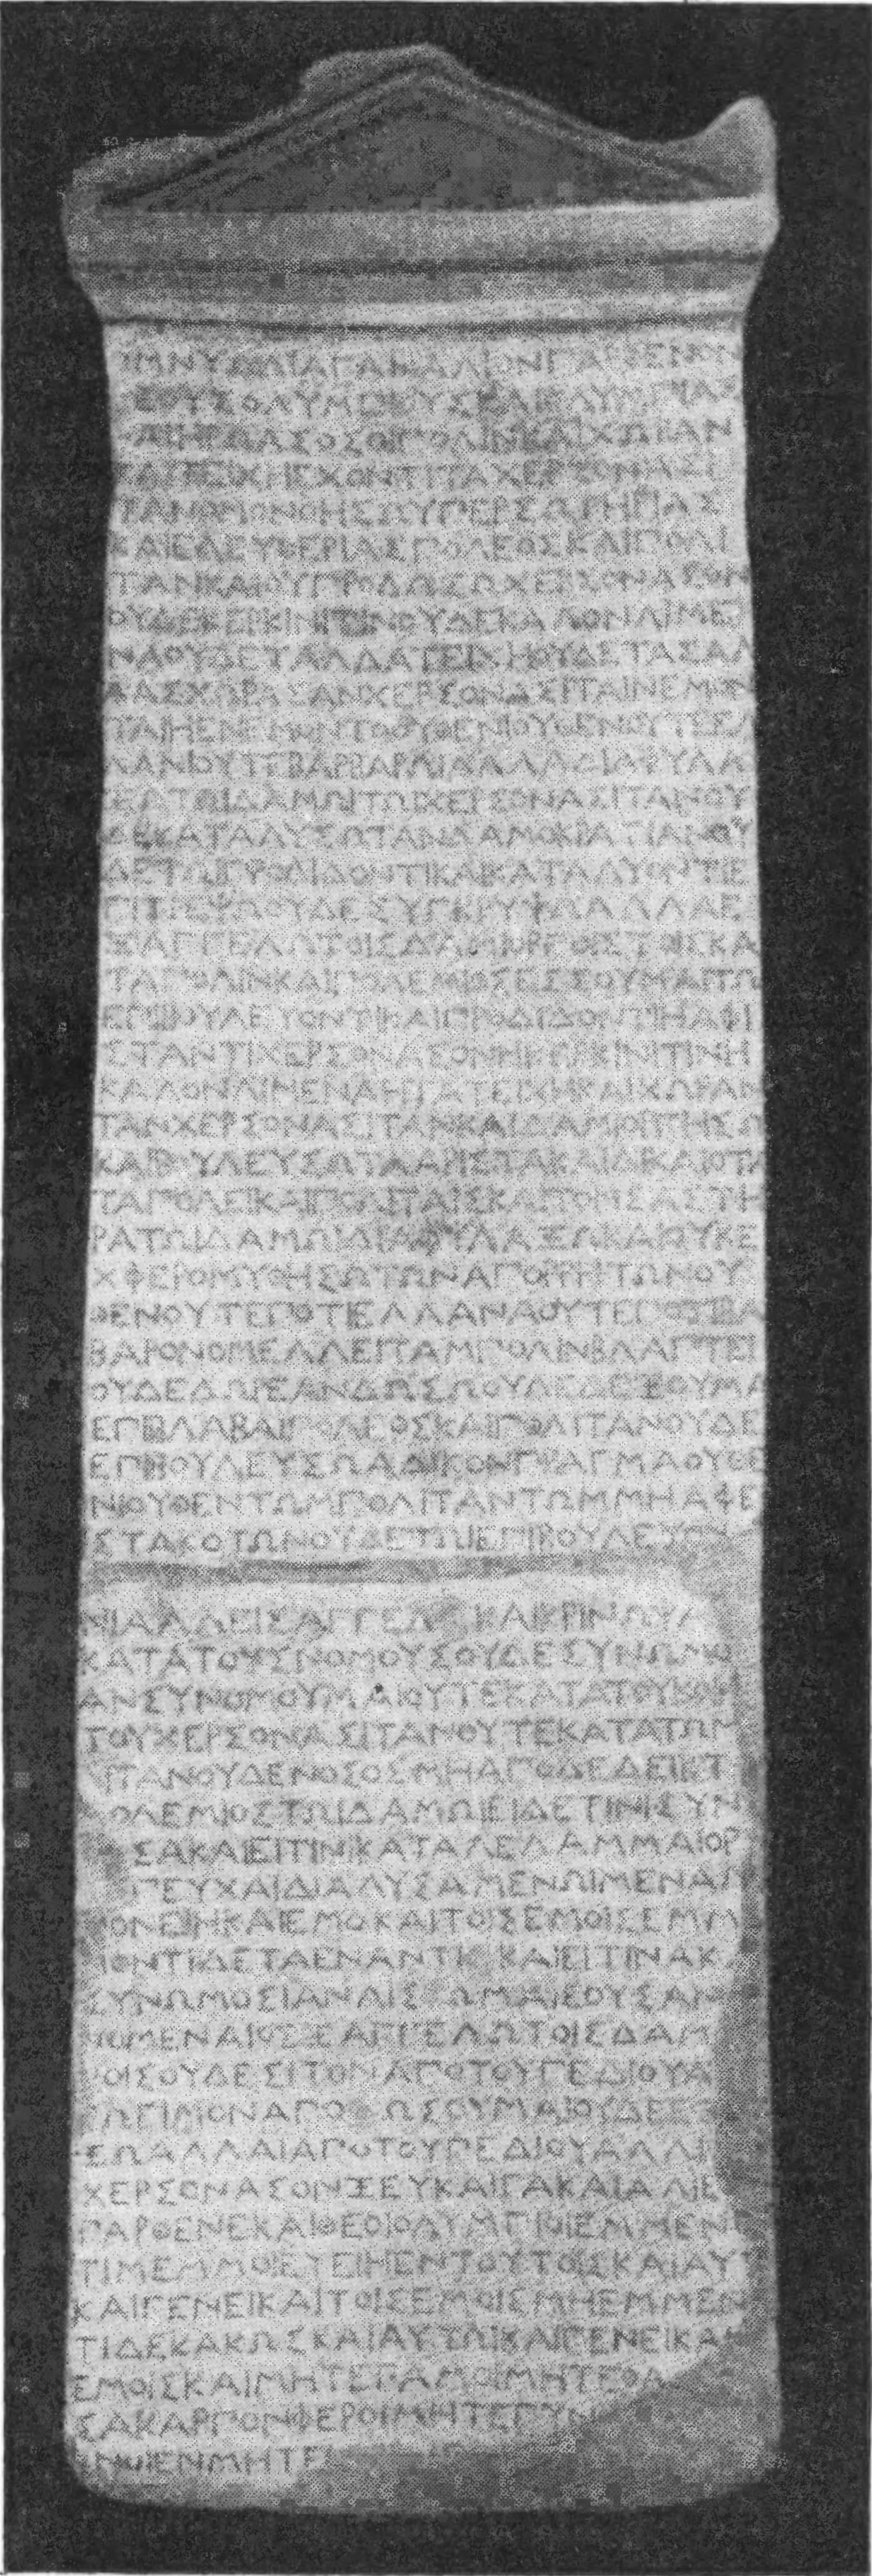 ΟΜΝΥΩΔΙΑΓΑΝΑΛΙΟΝΠΑΡΘΕΝΟΝ
ΘΕΟΥΣΟΛΥΜΠΙΟΥΣΚΑΙΟΛΥΜΠΙΑΣ
ΚΑΙΗΡΩΑΣΟΣΟΙΠΟΛΙΝΚΑΙΧΩΡΑΝ
ΚΑΙΤΕΙΧΗΕΧΟΝΤΙΤΑΧΕΡΣΟΝΑΣΙ
ΤΑΝΟΜΟΝΟΗΣΩΥΠΕΡΣΩΤΗΡΙΑΣ
ΚΑΙΕΛΕΥΘΕΡΙΑΣΠΟΛΕΟΣΚΑΙΠΟΛΙ
ΤΑΝΚΑΙΟΥΠΡΟΔΩΣΩΧΕΡΣΟΝΑΣΟΝ
ΟΥΔΕΚΕΡΚΙΝΙΤΙΝΟΥΔΕΚΑΛΟΝΛΙΜΕ
ΝΑΟΥΔΕΤΑΛΛΑΤΕΙΧΗΟΥΔΕΤΑΣΑΛ
ΛΑΣΧΩΡΑΣΑΝΧΕΡΣΟΝΑΣΙΤΑΙΝΕΜΟΝ
ΤΑΙΗΕΝΕΜΟΝΤΟΟΥΘΕΝΙΟΥΘΕΝΟΥΤΕΕΛ
ΛΑΝΙΟΥΤΕΒΑΡΒΑΡΩΙΑΛΛΑΔΙΑΦΥΛΑ
ΞΩΤΩΙΔΑΜΩΙΤΩΙΧΕΡΣΟΝΑΣΙΤΑΝΟΥ
ΔΕΚΑΤΑΛΥΣΩΤΑΝΔΑΜΟΚΡΑΤΙΑΝΟΥ
ΔΕΤΩΙΠΡΟΔΙΔΟΝΤΙΚΑΙΚΑΤΑΛΥΟΝΤΙΕ
ΠΙΤΡΕΨΩΟΥΔΕΣΥΓΚΡΥΨΩΑΛΛΑΕ
ΞΑΓΓΕΛΩΤΟΙΣΔΑΜΙΟΡΓΟΙΣΤΟΙΣΚΑ
ΤΑΠΟΛΙΝΚΑΙΠΟΛΕΜΙΟΣΕΣΣΟΥΜΑΙΤΩ
ΕΠΙΒΟΥΛΕΥΟΝΤΙΚΑΙΠΡΟΔΙΔΟΝΤΙΗΑΦΙ
ΣΤΑΝΤΙΧΕΡΣΟΝΑΣΟΝΗΚΕΡΚΙΝΙΤΙΝΗ
ΚΑΛΟΝΛΙΜΕΝΑΗΤΑΤΕΙΧΗΚΑΙΧΩΡΑΝ
ΤΑΝΧΕΡΣΟΝΑΣΙΤΑΝΚΑΙΔΑΜΙΟΡΓΗΣΩ
ΚΑΙΒΟΥΛΕΥΣΩΤΑΑΡΙΣΤΑΚΑΙΔΙΚΑΙΟΤΑ
ΤΑΠΟΛΕΙΚΑΙΠΟΛΙΤΑΙΣΚΑΙΤΟΝΣΑΣΤΗ
ΡΑΤΩΙΔΑΜΩΙΔΙΑΦΥΛΑΞΩΚΑΙΟΥΚΕ
ΧΦΕΡΟΜΥΘΗΣΩΤΩΝΑΠΟΡΡΗΤΩΝΟΥ
ΘΕΝΟΥΤΕΠΟΤΙΕΛΛΑΝΑΟΥΤΕΠΟΤΙΒΑ
ΒΑΡΟΝΟΜΕΛΛΕΙΤΑΜΠΟΛΙΝΒΛΑΠΤΕΙ
ΟΥΔΕΔΩΡΕΑΝΔΩΣΩΟΥΔΕΔΕΞΟΥΜΑ
ΕΠΙΒΛΑΒΑΙΠΟΛΕΟΣΚΑΙΠΟΛΙΤΑΝΟΥΔΕ
ΕΠΙΒΟΥΛΕΥΣΩΑΔΙΚΟΝΠΡΑΓΜΑΟΥΘΕ
ΝΙΟΥΘΕΝΤΩΜΠΟΛΙΤΑΝΤΩΜΜΗΑΦΕ
ΣΤΑΚΟΤΩΝΟΥΔΕΤΩΙΕΠΙΒΟΥΛΕΥΟΝ
ΝΙΑΛΛΕΙΣΑΓΓΕΛΩΚΑΙΚΡΙΝΩΨΑ
ΚΑΤΑΤΟΥΣΝΟΜΟΥΣΟΥΔΕΣΥΝΩΜΟΣ
ΑΝΣΥΝΟΜΟΥΜΑΙΟΥΤΕΚΑΤΑΤΟΥΚΟΙΝ
ΤΟΥΧΕΡΣΟΝΑΣΙΤΑΝΟΥΤΕΚΑΤΑΤΩΜ
ΛΙΤΑΝΟΥΔΕΝΟΣΟΣΜΗΑΠΟΔΕΔΕΙΚΤ
ΠΟΛΕΜΙΟΣΤΩΙΔΑΜΩΙΕΙΔΕΤΙΝΙΣΥΝ
ΣΑΚΑΙΕΙΤΙΝΙΚΑΤΑΛΕΛΑΜΜΑΙΟΡ
ΠΕΥΧΑΙΔΙΑΛΥΣΑΜΕΝΩΙΜΕΝΑΜ
ΝΟΝΕΙΗΚΑΙΕΜΟΙΚΑΙΤΟΙΣΕΜΟΙΣΕΜΜ
ΝΟΝΤΙΔΕΤΑΕΝΑΝΤΙΑΚΑΙΕΙΤΙΝΑΚΑ
ΣΥΝΩΜΟΣΙΑΝΑΙΣΘΩΜΑΙΕΟΥΣΑΝ
ΝΟΜΕΝΑΝΕΞΑΓΓΕΛΩΤΟΙΣΔΑΜ
ΓΟΙΣΟΥΔΕΣΙΤΟΝΑΠΟΤΟΥΠΕΔΙΟΥΑ
ΓΩΓΙΜΟΝΑΠΟΔΩΣΟΥΜΑΙΟΥΔΕΕΞ
ΞΩΑΛΛΑΙΑΠΟΤΟΥΠΕΔΙΟΥΑΛΛ
ΧΕΡΣΟΝΑΣΟΝΖΕΥΚΑΙΓΑΚΑΙΑΛΙΕ
ΠΑΡΘΕΝΕΚΑΙΘΕΟΙΟΛΥΜΠΙΟΙΕΜΜΕΝ
ΤΙΜΕΜΜΟΙΕΥΕΙΗΕΝΤΟΥΤΟΙΣΚΑΙΑΥΤ
ΚΑΙΓΕΝΕΙΚΑΙΤΟΙΣΕΜΟΙΣΜΗΕΜΜΕΝ
ΤΙΔΕΚΑΚΩΣΚΑΙΑΥΤΩΙΚΑΙΓΕΝΕΙΚΑ
ΕΜΟΙΣΚΑΙΜΗΤΕΓΑΜΟΙΜΗΤΕΘΑΛ
ΣΑΚΑΡΠΟΝΦΕΡΟΙΜΗΤΕΓΥΝ
ΜΗΤΕ